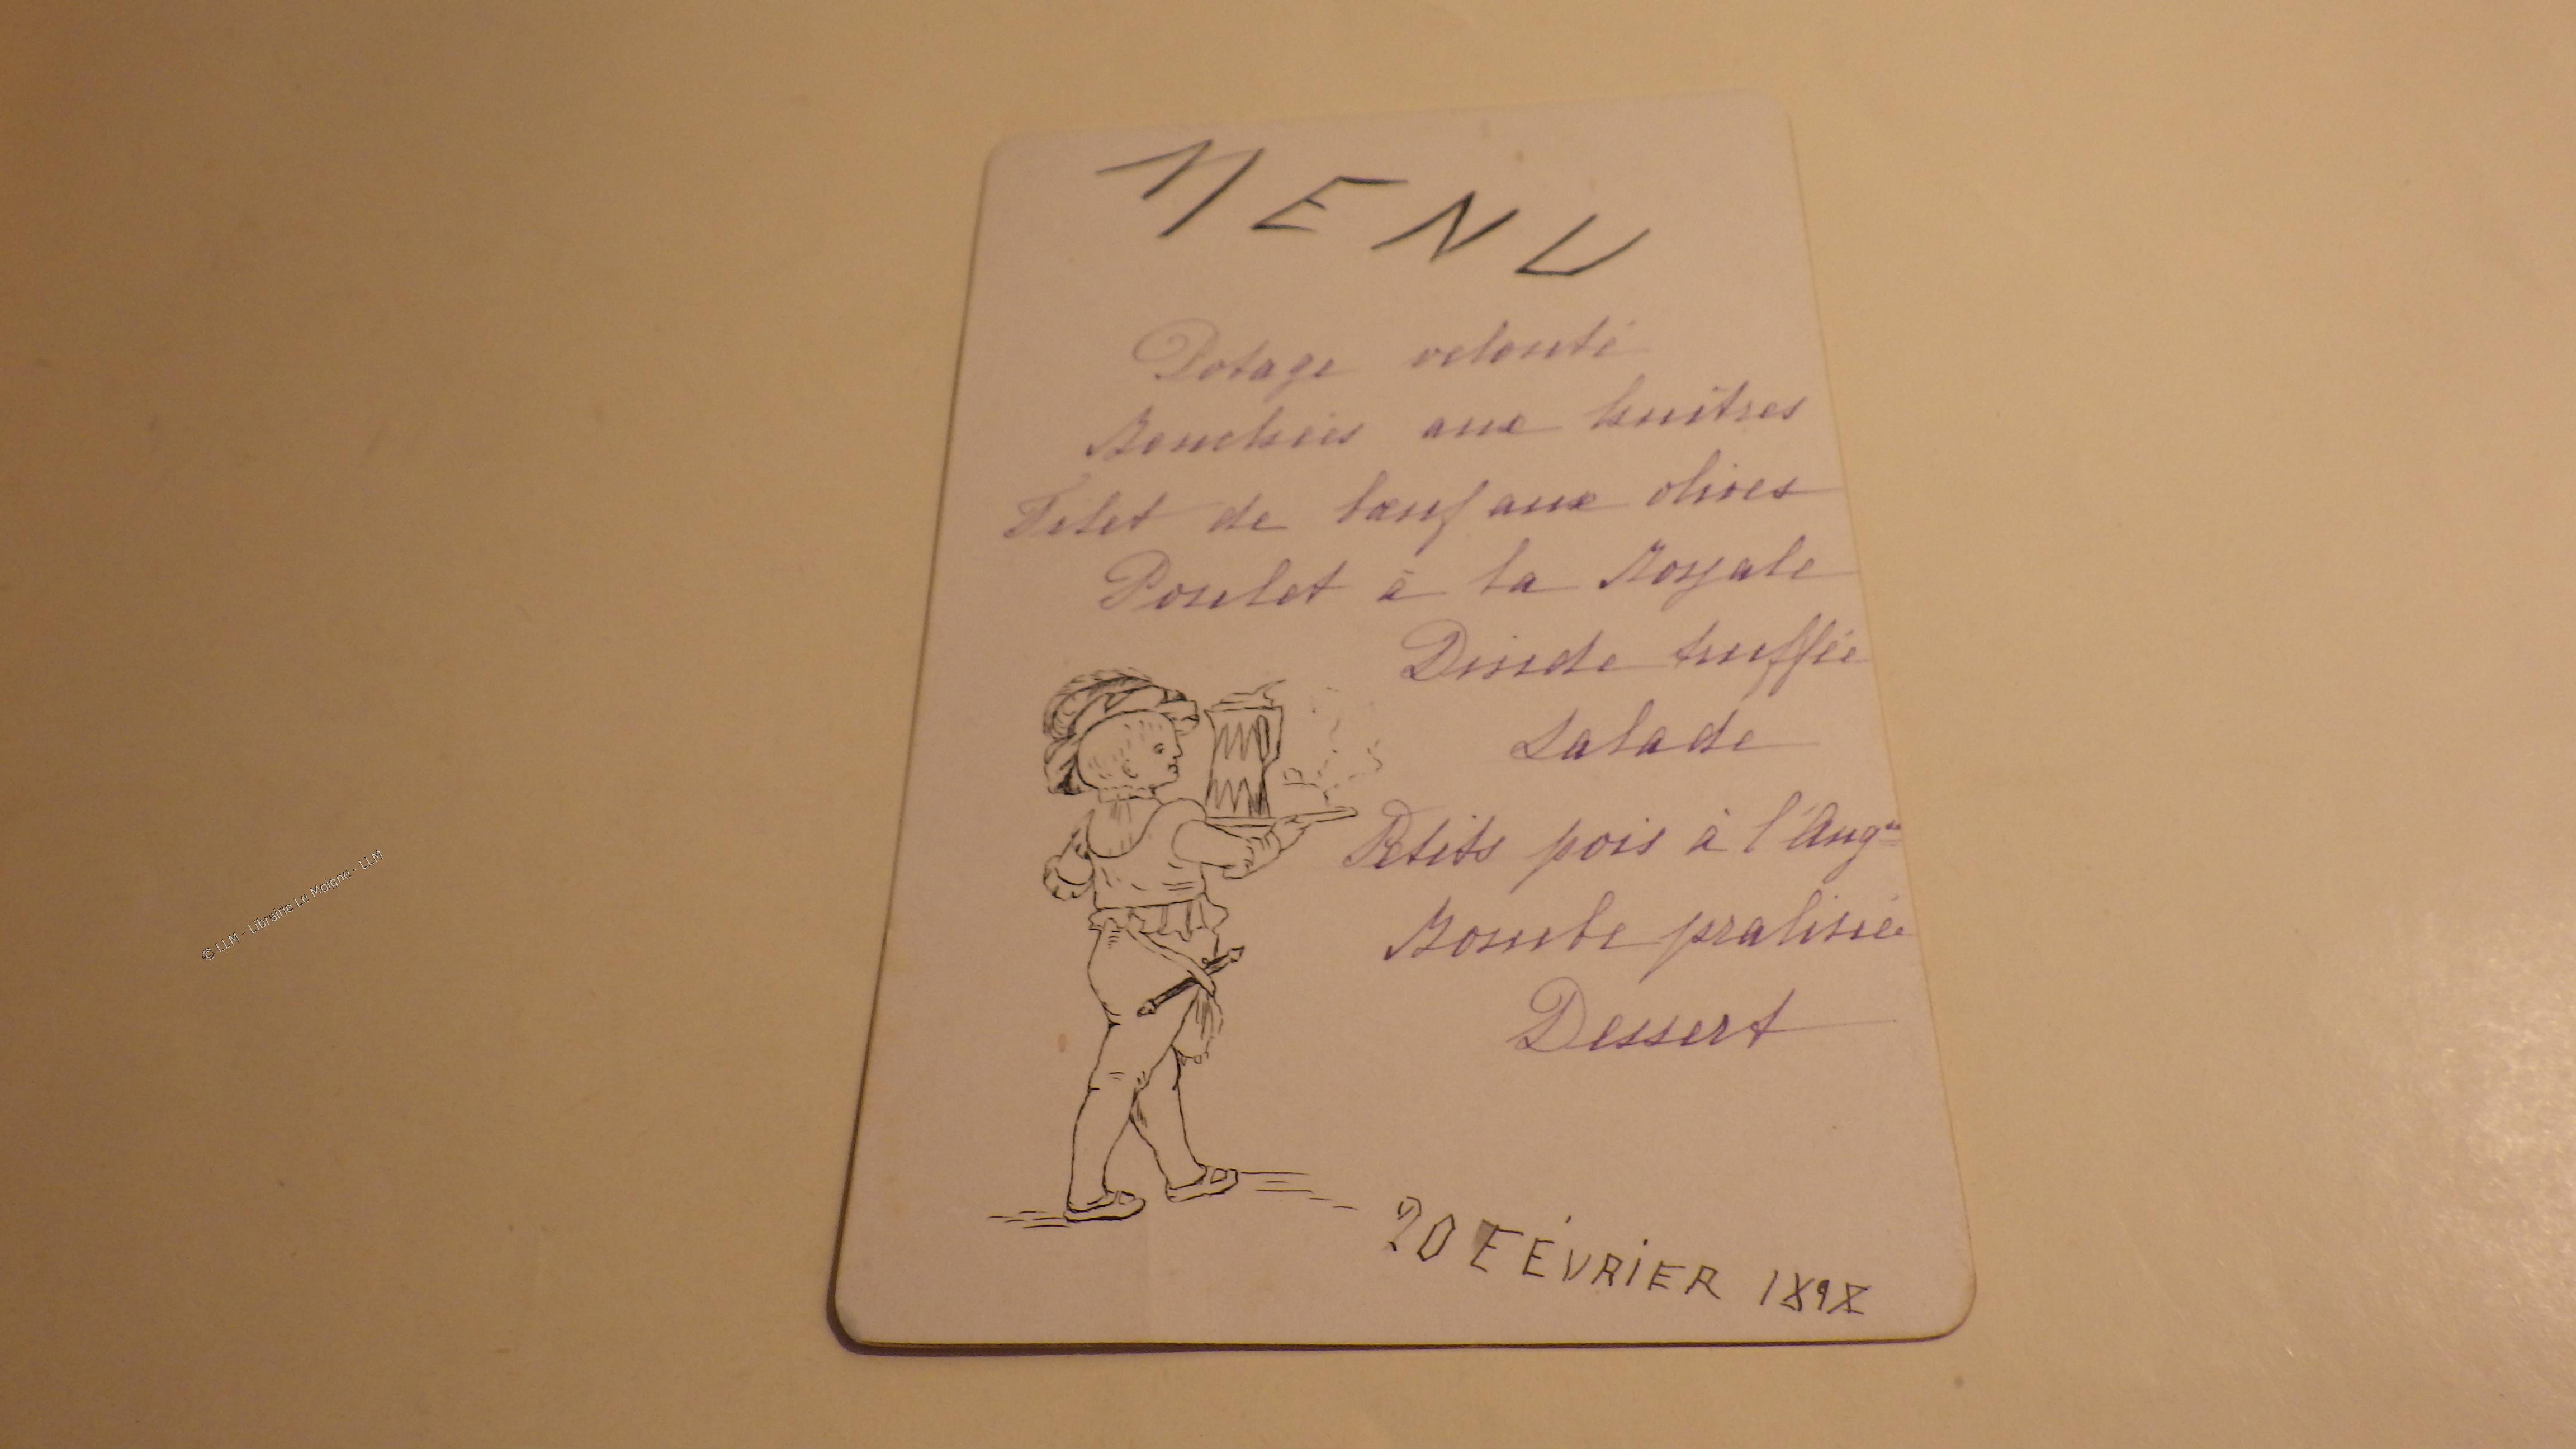 MENU
Potage velouté
Bouchées aux huîtres
Filet de bœuf aux olives
Poulet à la Royale
Dinde truffée
Salade
Petits pois à l'Angse
Bombe pralinée
Dessert
20 FÉVRIER 1898
© LLM - Librairie Le Moigne - LLM